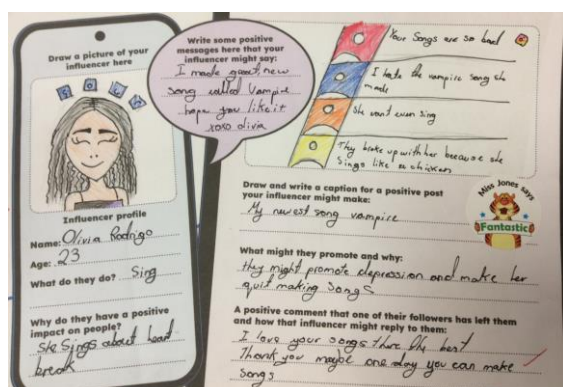 Draw a picture of your
influencer here
SOUR
Influencer profile
Name: Olivia Rodrigo
Age: 23
What do they do? Sing
Why do they have a positive
impact on people?
She Sings about heart
break
Write some positive
messages here that your
influencer might say:
I made great new
song called Vampire
hope you like it
xoxo olivia
Your Songs are so bad
I hate the vampire song she
made
She cant even sing
They broke up with her because she
Sings like a chicken
Draw and write a caption for a positive post
your influencer might make:
My newest song vampire
What might they promote and why:
they might promote depression and make her
quit making Songs
A positive comment that one of their followers has left them
and how that influencer might reply to them:
I love your songs there the best
Thank you maybe one day you can make
songs
Miss Jones says
Fantastic